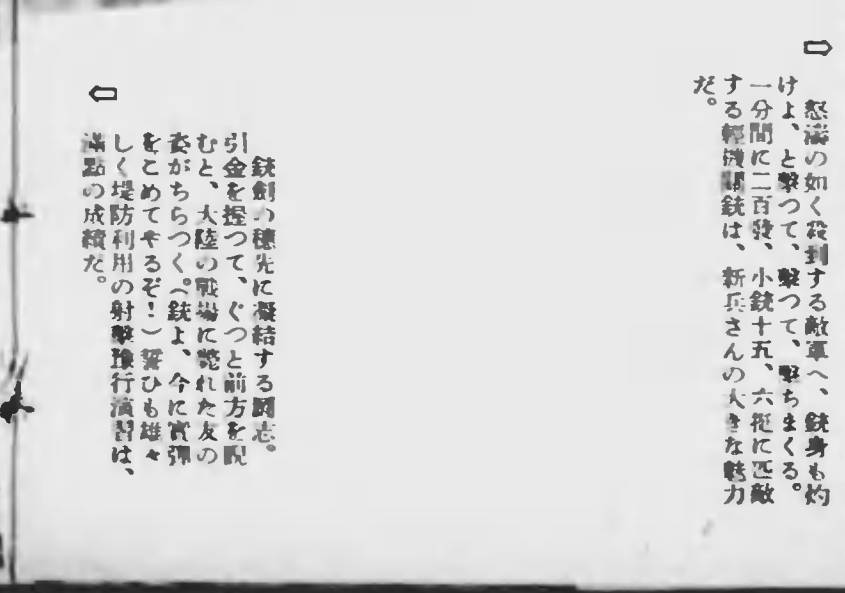 怒濤の如く殺到する敵軍へ、銃身も灼
けよ、と擊つて、擊つて、擊ちまくる。
一分間に二百發、小銃十五、六挺に匹敵
する輕機關銃は、新兵さんの大きな魅力
だ。
銃劍の穗先に凝結する鬪志。
引金を握つて、ぐつと前方を睨
むと、大陸の戰場に斃れた友の
姿がちらつく。(銃よ、今に實彈
をこめてやるぞ!)誓ひも雄々
しく堤防利用の射擊豫行演習は、
滿點の成績だ。